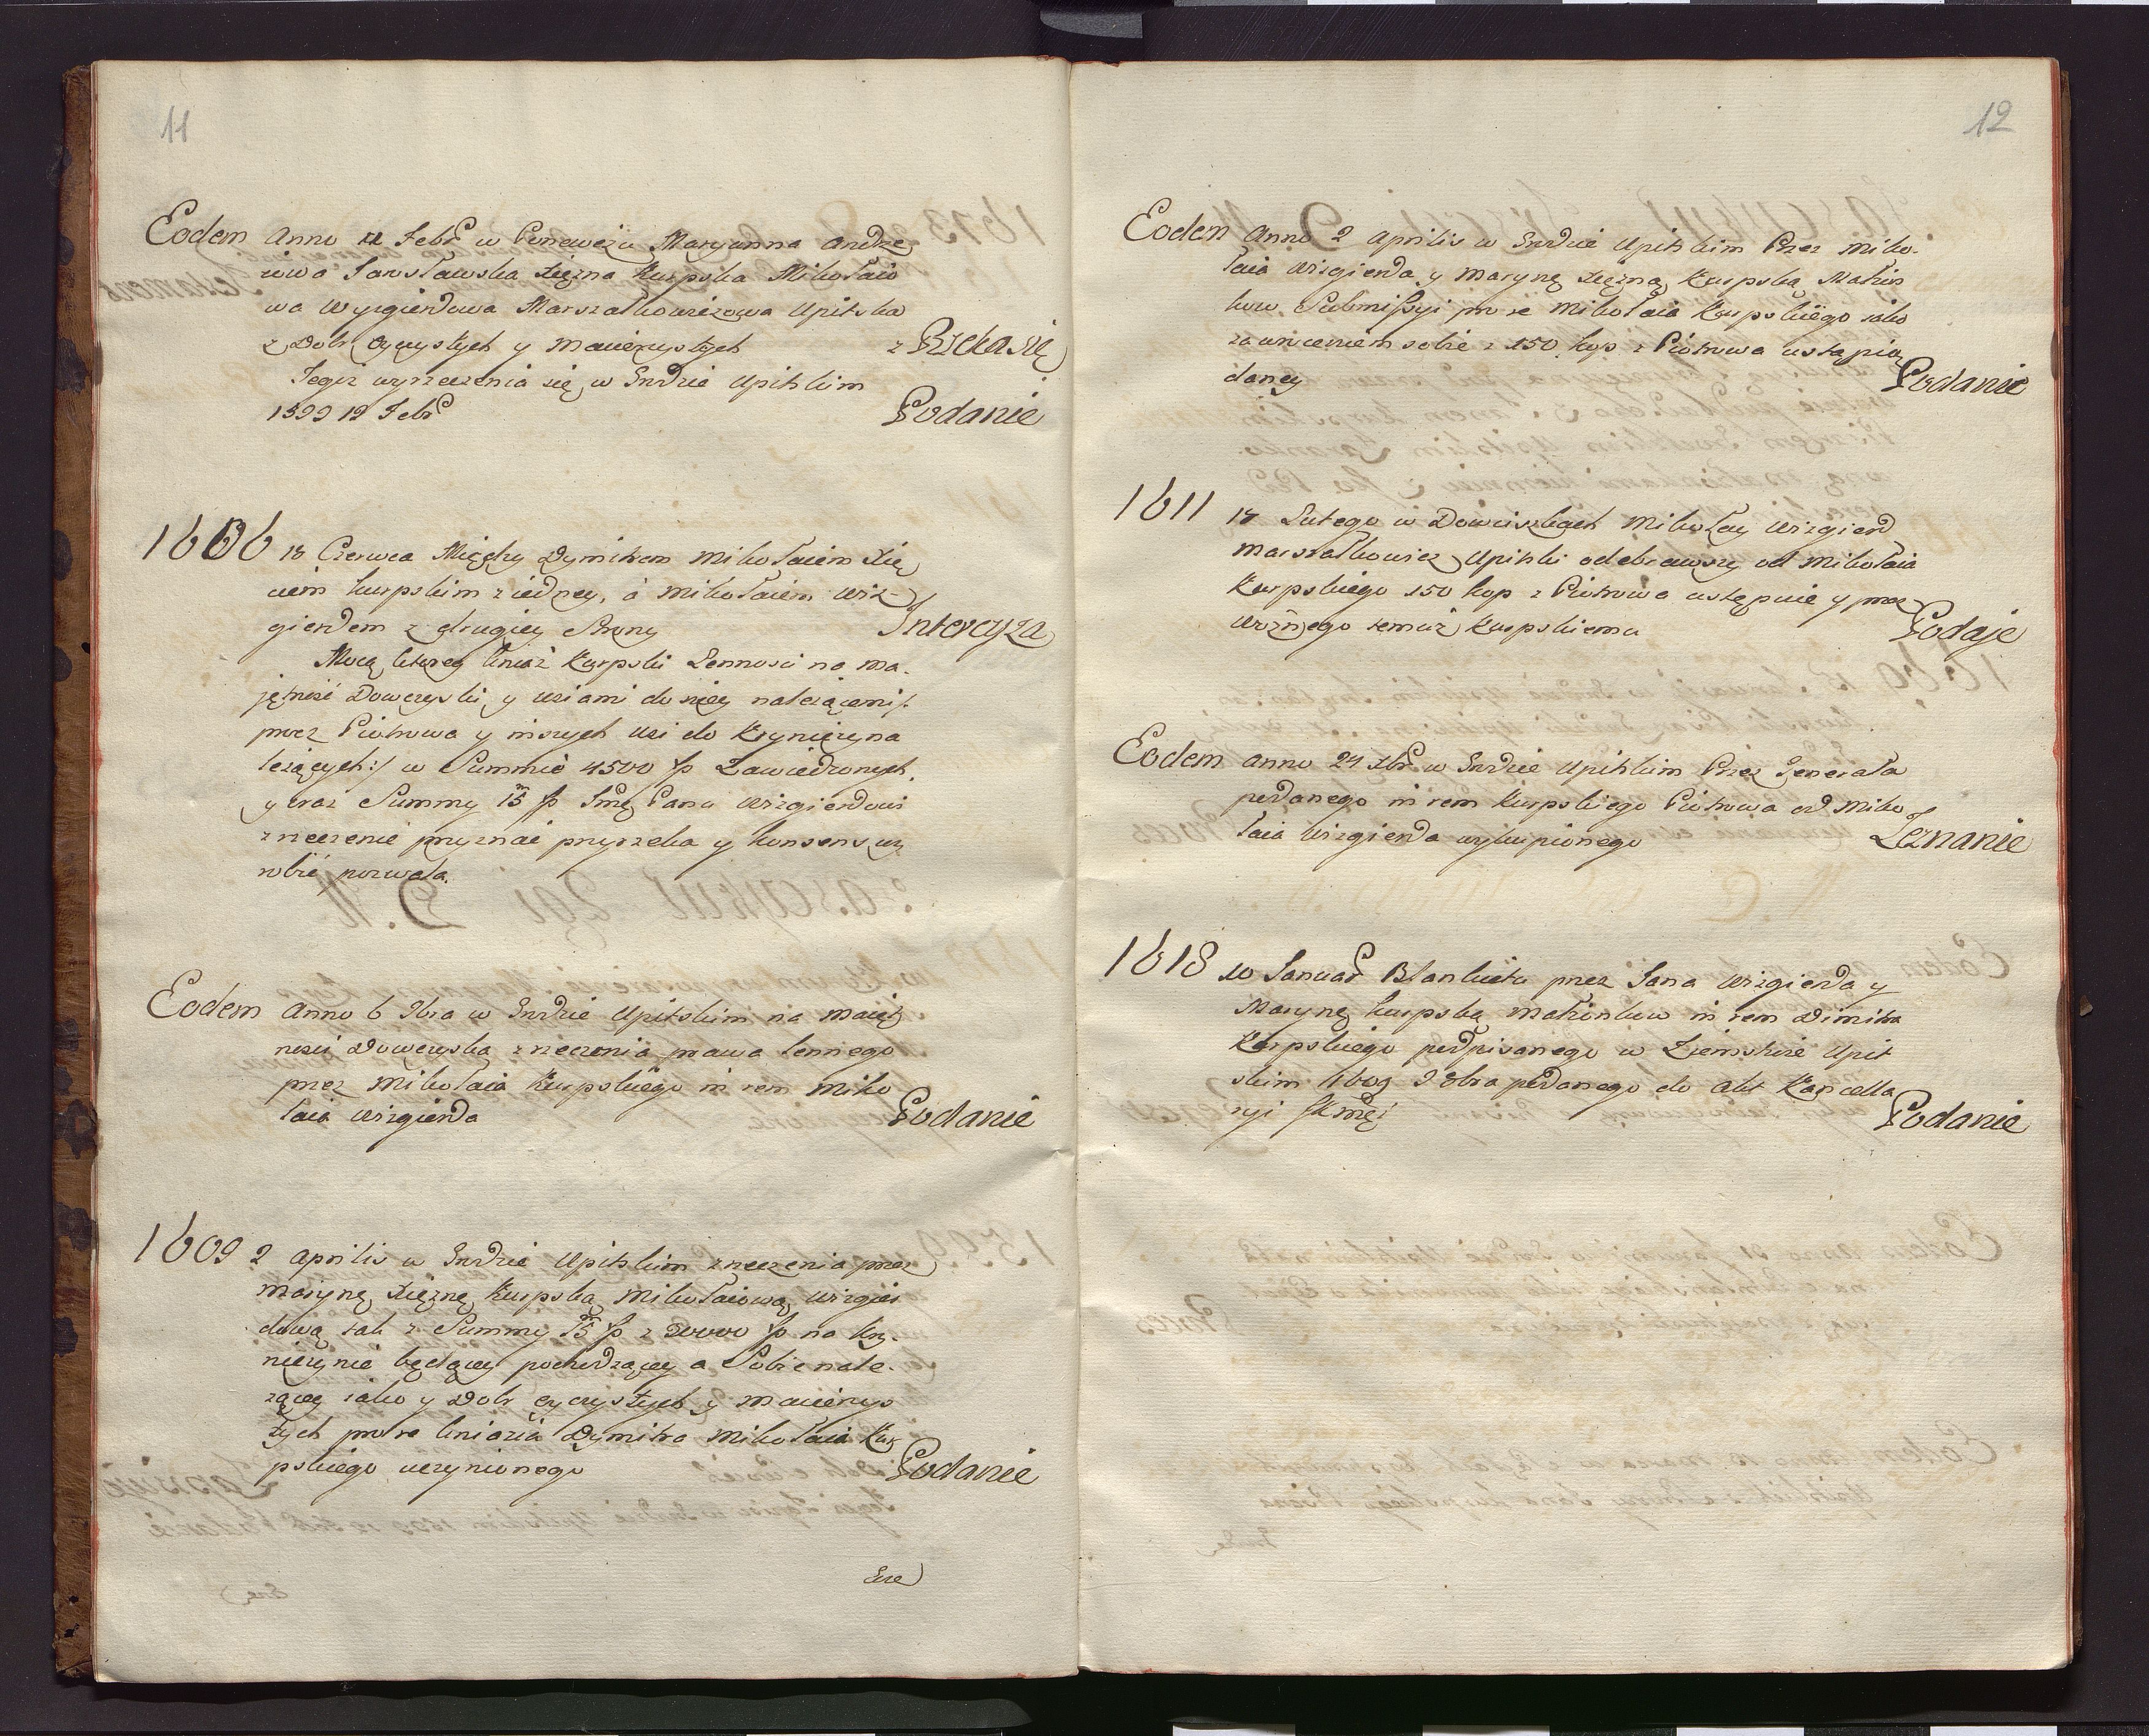 11
Eodem Anno 12 Febr w Poneweżu Maryanna Andrze
iowa Jarosławska Xiężna Kurpska Mikołaio
wa Wyzgierdowa Marszałkowiczowa Upitska
z Dobr Oyczystych y Macierzystych z Rzeka się
Tegiż wyrzeczenia się w Grdzie Upitskim
1599 12 Febr Podanie
1606 18 Czerwca Między Dymitrem Mikołaiem Xię
ciem Kurpskim z iedney, á Mikołaiem Wiz-
gierdem z drugiey strony Intercyza
Mocą ktorey kniaź Kurpski Lennosci na ma-
jętność Dowczyski y wsiami do niey należącemi /:
procz Piotrowa y inszych wsi do Kryniczyna
leżących :/ w Summie 4500 fp Zawiedzonych,
y oraz Summy 15 fp Jmę Panu Wizgierdowi
zrzeczenie przyznać przyrzeka y konsens wy
robić pozwala.
Eodem Anno 6 9bra w Grdzie Upitskim na maięt
nosci Dowczyską zrzeczenia prawa lennego
przez Mikołaia Kurpskiego in rem Miko
łaia Wizgierda Podanie
1609 2 Aprilis w Grdzie Upitskim zrzeczenia przez
Marynę Xiężnę Kurpską Mikołaiową Wizgier
dową tak z Summy 15 fp z 20000 fp na Kry-
niczynie będącey pochodzącey a Sobie nale-
żącey iako y Dobr oyczystych y Macierzys
tych pro re kniazia Dymitra Mikołaia Kur
pskiego uczynionego Podanie
12
Eodem Anno 2 Aprilis w Grdzie Upitskim Przez Miko-
łaia Wizgierda y Marynę Xiężnę Kurpską Małżon
kow Submissyi pro re Mikołaia Kurpskiego iako
za wroceniem sobie z 150 kop z Piotrowa ustąpią
daney Podanie
1611 14 Lutego w Dowciszkach Mikołay Wizgierd
Marszałkowicz Upitski odebrawszy od Mikołaia
Kurpskiego 150 kop z Piotrowa ustępuie y przez
Woźnego temuż Kurpskiemu Podaje
Eodem Anno 24 Xbr w Grdzie Upitskim Przez Jenerała
podanego in rem Kurpskiego Piotrowa od Miko
łaia Wizgierda wykupionego Zeznanie
1618 10 Januar Blankietu przez Jana Wizgierda y
Marynę Kurpską małżonkow in rem Dimitra
Kurpskiego podpisanego w Ziemstwie Upit
skim 1609 9 8bra podanego do Akt Kancella
ryi Podanie